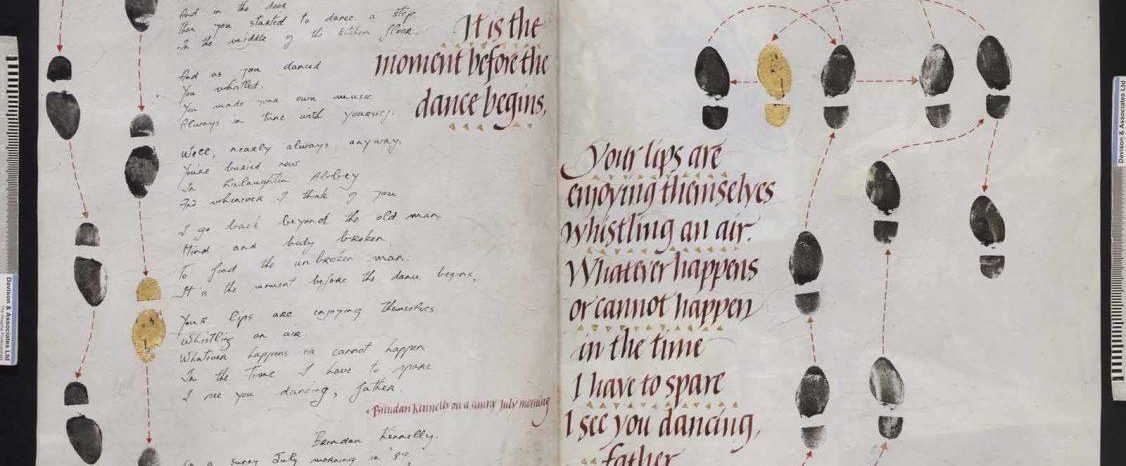 And in the door
Then you started to dance a step
In the middle of the kitchen floor.
And as you danced
You whistled
You made your own music
Always in tune with yourself.
Well, nearly always, anyway.
You're buried now
In Lislaughtin Abbey
And whenever I think of you
I go back beyond the old man
Mind and body broken
To find the unbroken man.
It is the moment before the dance begins,
Your lips are enjoying themselves
Whistling an air
Whatever happens or cannot happen
In the time I have to spare
I see you dancing, father.
Brendan Kennelly on a sunny July morning
Brendan Kennelly.
On a sunny July morning in '84
It is the
moment before the
dance begins,
Your lips are
enjoying themselves
whistling an air.
Whatever happens
or cannot happen
in the time
I have to spare
I see you dancing,
father
Davison & Associates Ltd
Davison & Associates Ltd